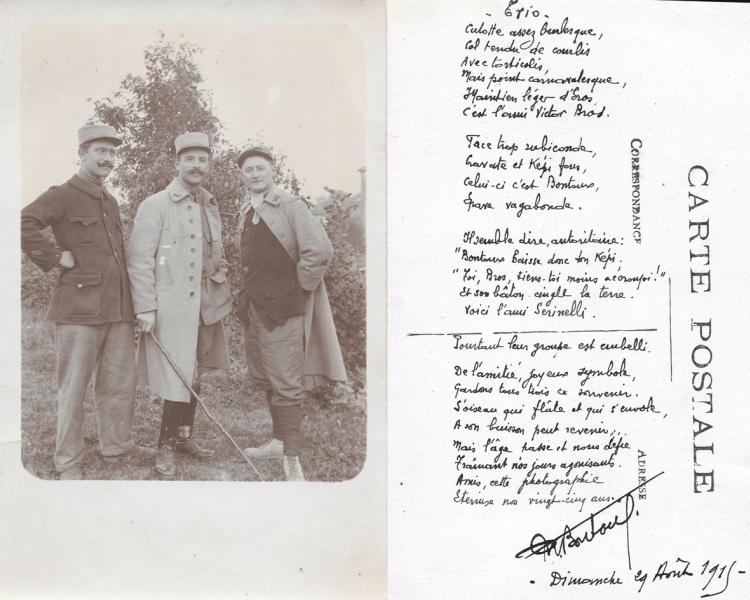 - Trio -
Culotte assez burlesque,
Col tendu de courlis
Avec torticolis,
Mais point carnavalesque,
Maintien léger d'Eros,
C'est l'ami Victor Bros.
Face trop rubiconde,
Cravate et Képi fous,
Celui-ci c'est Bontoux,
Epave vagabonde.
Il semble dire, autoritaire:
"Bontoux baisse donc ton Képi.
"Toi, Bros, tiens-toi moins accroupi!"
Et son bâton cingle la terre.
Voici l'ami Serinelli.
Pourtant leur groupe est embelli.
De l'amitié, joyeux symbole,
Gardons tous trois ce souvenir.
L'oiseau qui flûte et qui s'envole,
A son buisson peut revenir;..
Mais l'âge passe et nous défie
Tramant nos jours agonisants.
Amis, cette photographie
Eternise nos vingt-cinq ans.
- Dimanche 29 Août 1915 -
CORRESPONDANCE
ADRESSE
CARTE POSTALE